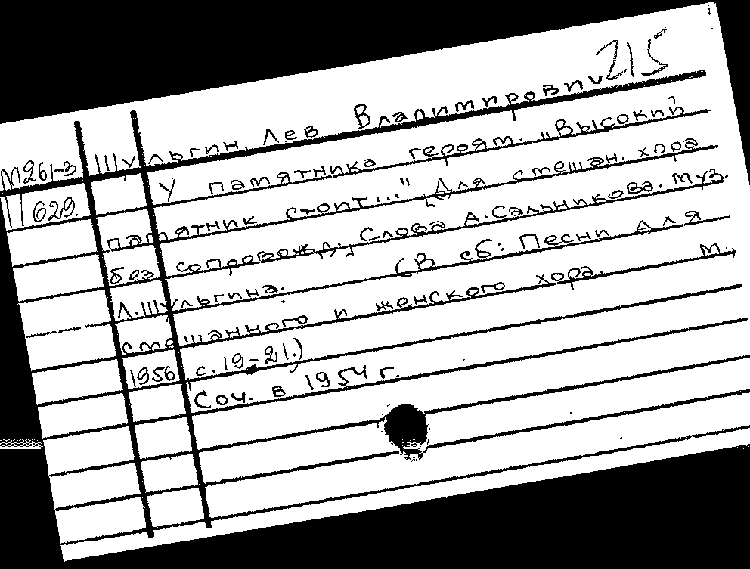 215
М261-3 Шульгин, Лев Владимирович
11029 У памятника героям. „Высокий
памятник стоит..." /Для смешан. хора
без сопровожд./ Слова А.Сальникова. Муз.
Л.Шульгина. (В сб: Песни для
смешанного и женского хора. М.,
1956, с.19-21.)
Соч. в 1954 г.